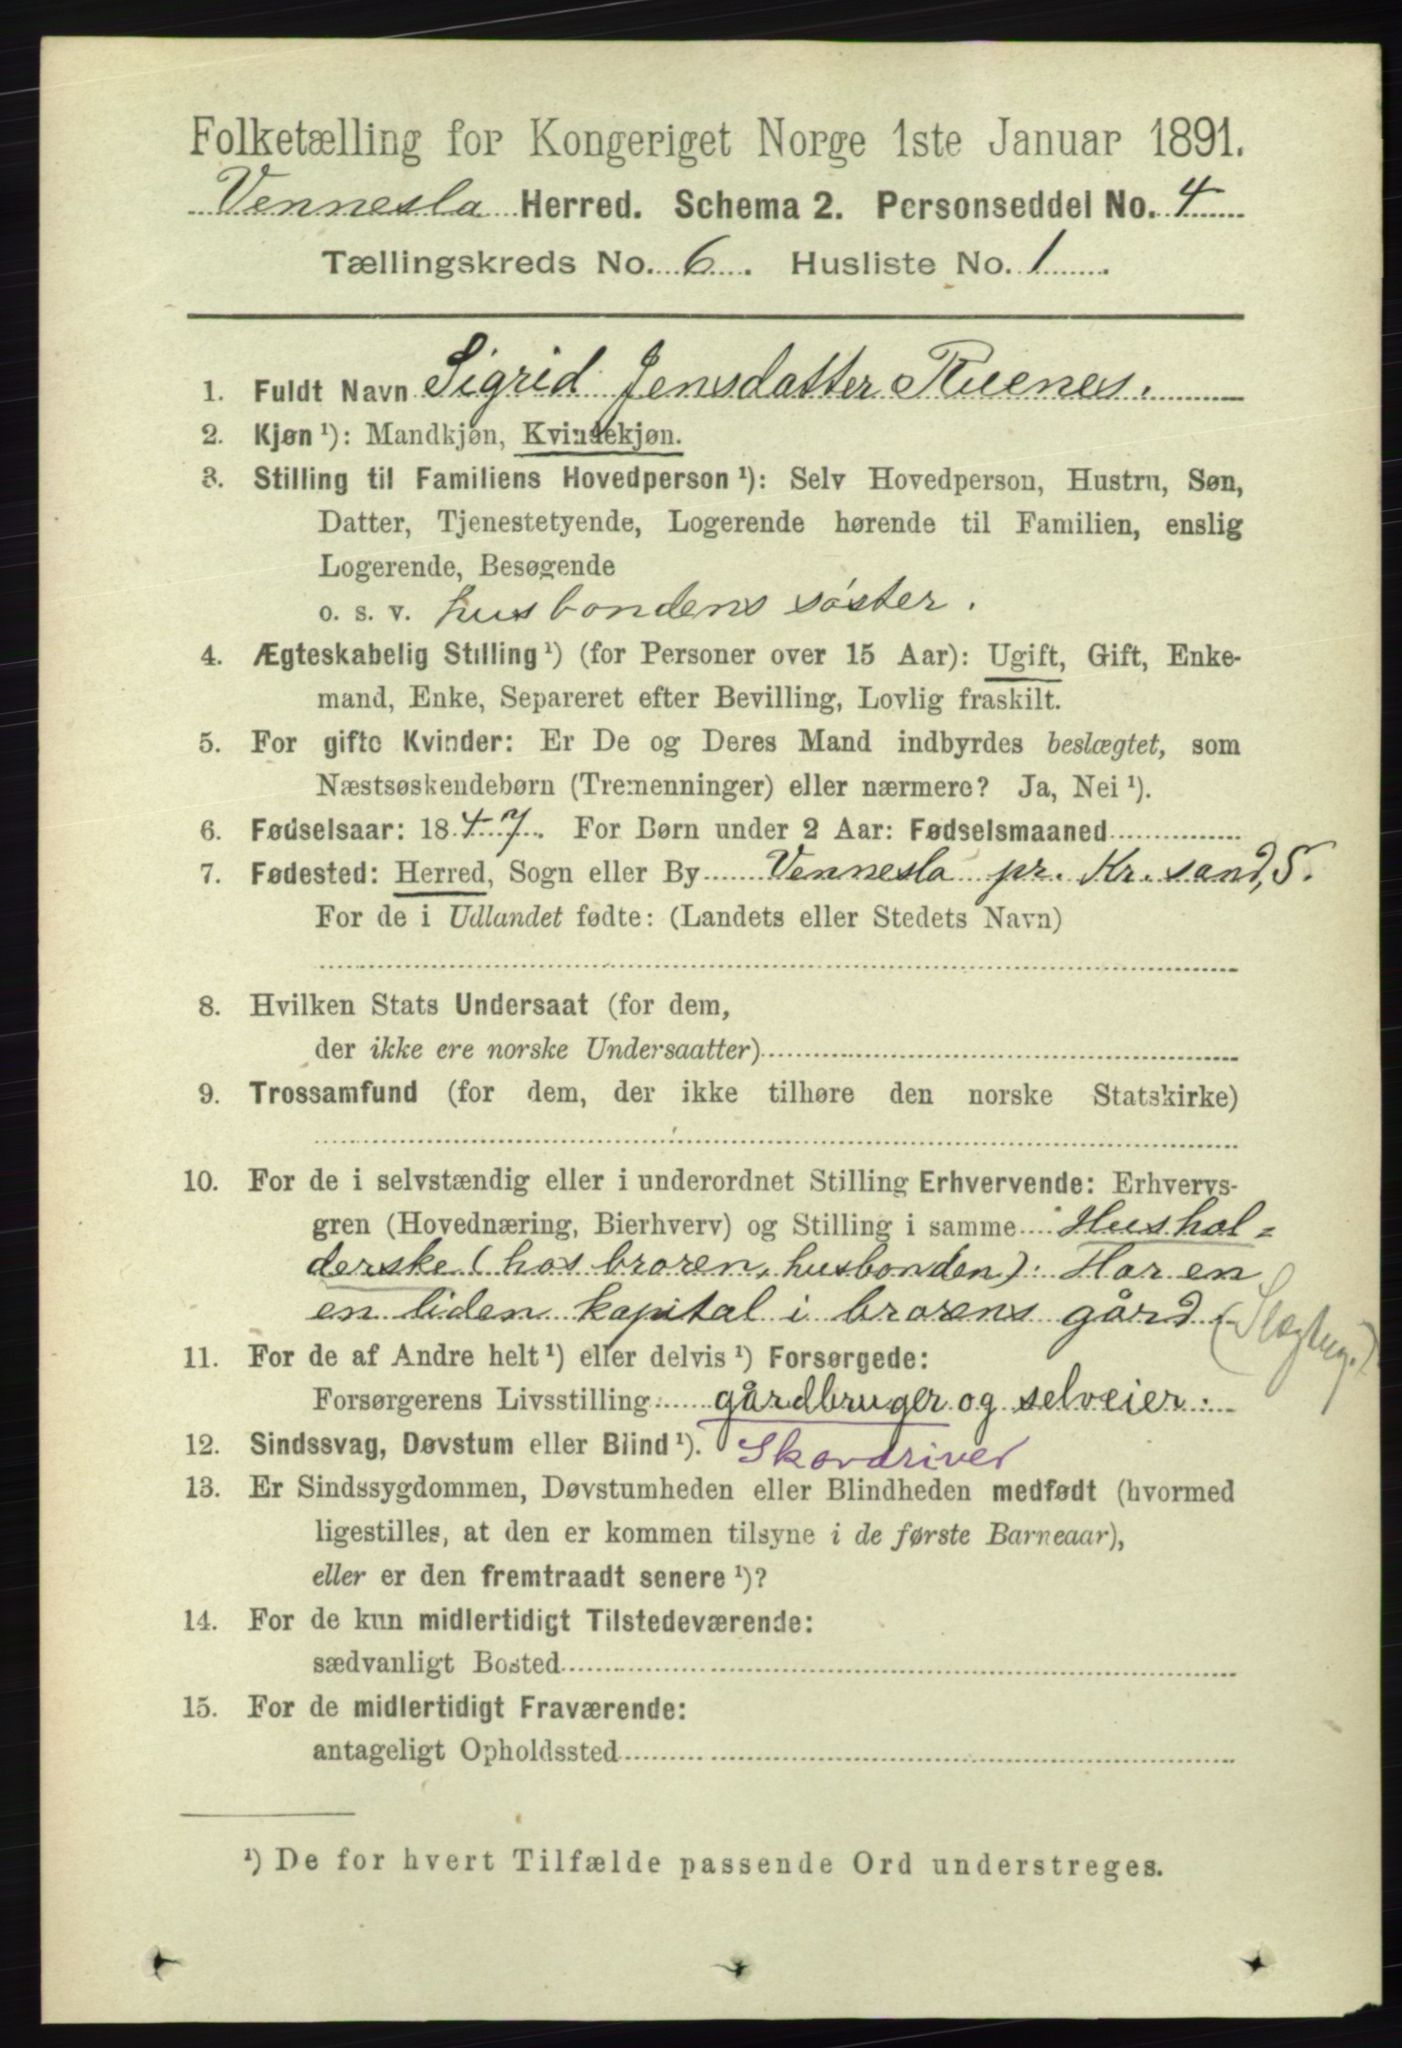 Folketælling for Kongeriget Norge 1ste Januar 1891.
Vennesla Herred. Schema 2. Personseddel No. 4
Tællingskreds No. 6. Husliste No. 1
1. Fuldt Navn Sigrid Jensdatter Ruenes.
2. Kjøn ¹): Mandkjøn, Kvindekjøn.
3. Stilling til Familiens Hovedperson ¹): Selv Hovedperson, Hustru, Søn,
Datter, Tjenestetyende, Logerende hørende til Familien, enslig
Logerende, Besøgende
o. s. v. husbondens søster.
4. Ægteskabelig Stilling ¹) (for Personer over 15 Aar): Ugift, Gift, Enke-
mand, Enke, Separeret efter Bevilling, Lovlig fraskilt.
5. For gifte Kvinder: Er De og Deres Mand indbyrdes beslægtet, som
Næstsøskendebørn (Tremenninger) eller nærmere? Ja, Nei ¹).
6. Fødselsaar: 1847. For Børn under 2 Aar: Fødselsmaaned
7. Fødested: Herred, Sogn eller By Vennesla pr. Kr.sand, S.
For de i Udlandet fødte: (Landets eller Stedets Navn)
8. Hvilken Stats Undersaat (for dem,
der ikke ere norske Undersaatter)
9. Trossamfund (for dem, der ikke tilhøre den norske Statskirke)
10. For de i selvstændig eller i underordnet Stilling Erhvervende: Erhvervs-
gren (Hovednæring, Bierhverv) og Stilling i samme Hushol=
derske (hos broren, husbonden). Har en
en liden kapital i brorens gård.
11. For de af Andre helt ¹) eller delvis ¹) Forsørgede:
Forsørgerens Livsstilling gårdbruger og selveier.
12. Sindssvag, Døvstum eller Blind ¹). Skovdriver
13. Er Sindssygdommen, Døvstumheden eller Blindheden medfødt (hvormed
ligestilles, at den er kommen tilsyne i de første Barneaar),
eller er den fremtraadt senere ¹)?
14. For de kun midlertidigt Tilstedeværende:
sædvanligt Bosted
15. For de midlertidigt Fraværende:
antageligt Opholdssted
¹) De for hvert Tilfælde passende Ord understreges.